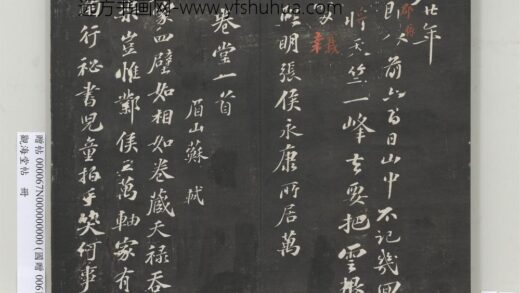 远方书画网- www.yfshuhua.com
廿年
依前六百日山中不記幾回
天竺一峰去要把雲根
明張侯永康所居萬
卷堂一首
眉山蘇軾
家四壁如相如卷藏天祿吞
渠豈惟鄴侯三萬軸家有
南行祕書兒童拍手笑何事
贈帖 000067N000000000 (國贈 006
觀海堂帖 冊